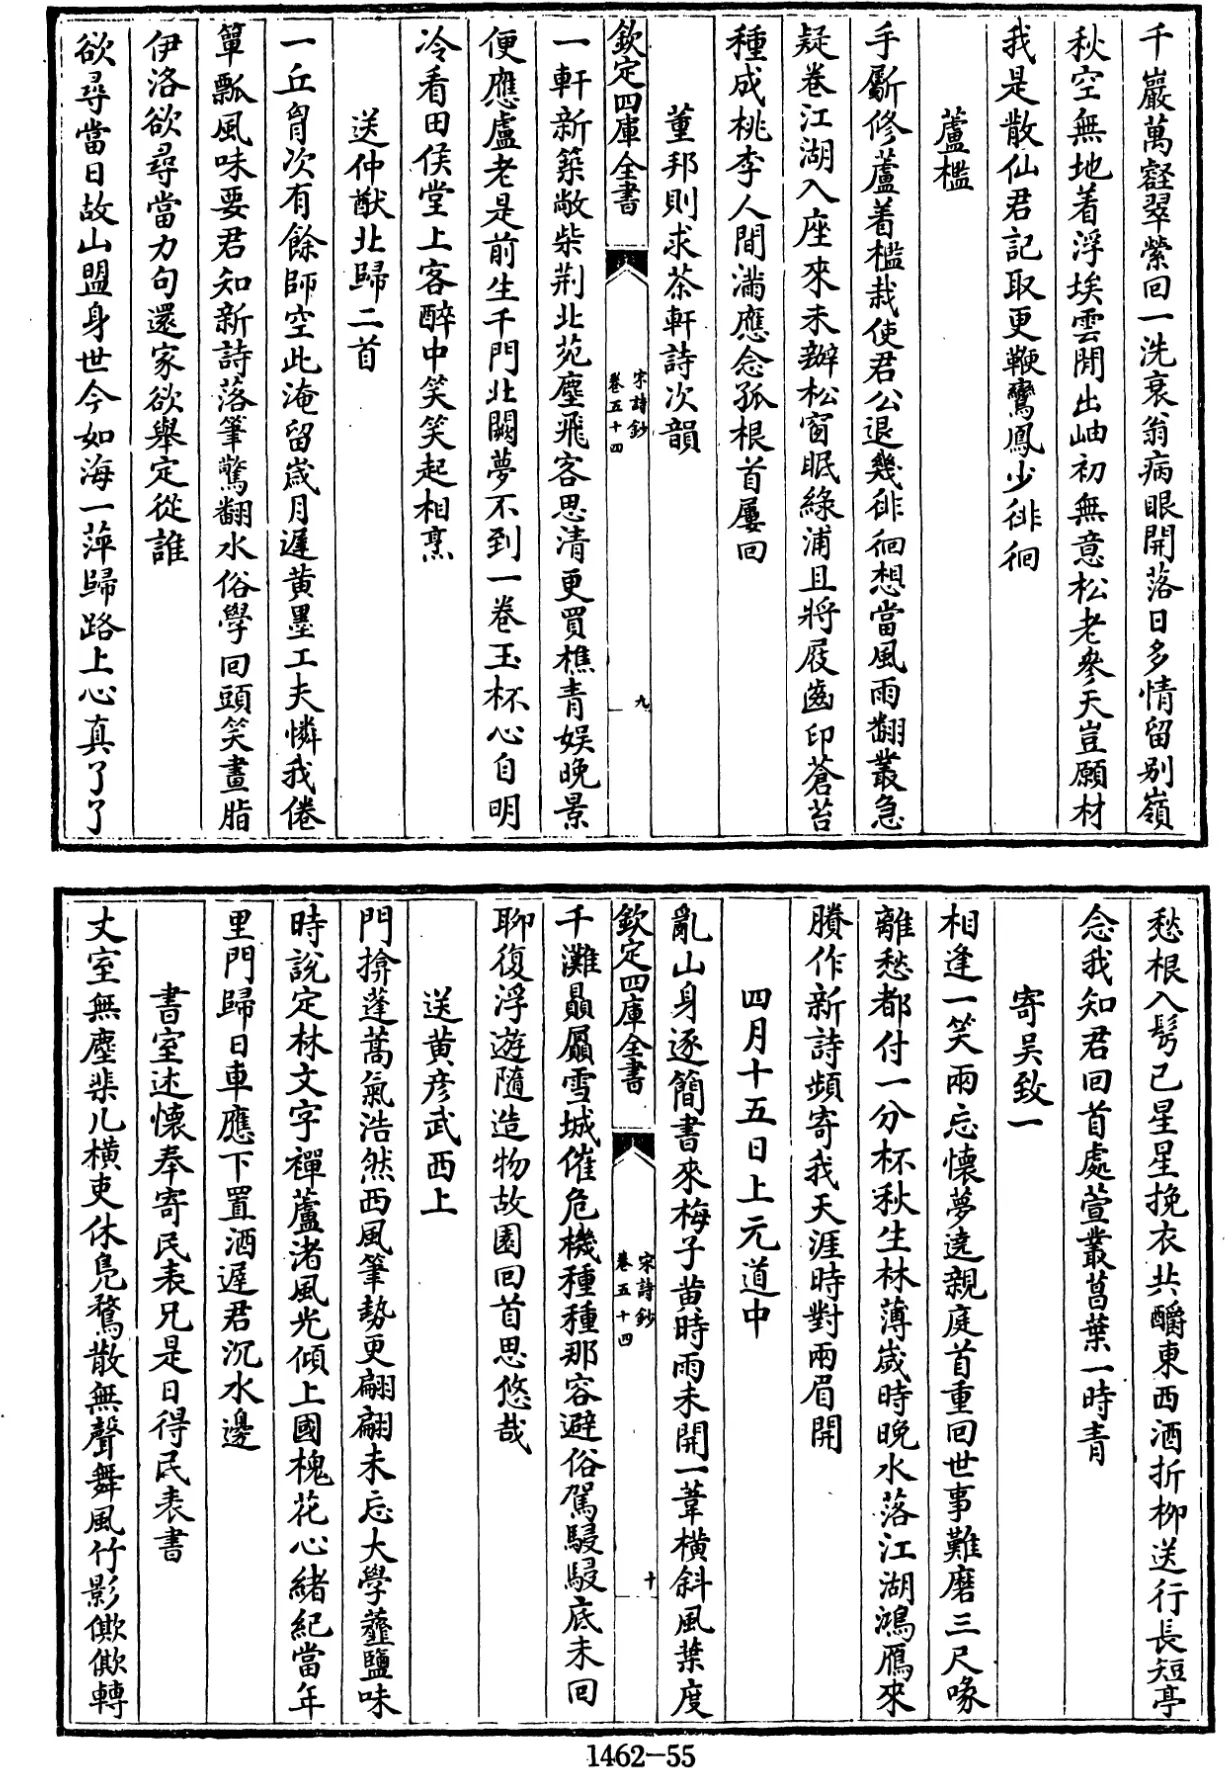 千巖萬壑翠縈回一洗衰翁病眼開落日多情留别嶺
秋空無地着浮埃雲閒出岫初無意松老參天豈願材
我是散仙君記取更鞭鸞鳳少徘徊
蘆檻
手斸修蘆着檻栽使君公退幾徘徊想當風雨翻叢急
疑卷江湖入座來未辦松窗眠綠浦且將屐齒印蒼苔
種成桃李人間滿應念孤根首屢回
董邦則求茶軒詩次韻
欽定四庫全書
宋詩鈔
卷五十四
九
一軒新築敞柴荆北苑塵飛客思清更買樵青娱晚景
便應盧老是前生千門北闕夢不到一卷玉杯心自明
冷看田侯堂上客醉中笑笑起相烹
送仲猷北歸二首
一丘胷次有餘師空此淹留歲月遲黄墨工夫憐我倦
簞瓢風味要君知新詩落筆驚翻水俗學回頭笑畫脂
伊洛欲尋當力句還家欲舉定從誰
欲尋當日故山盟身世今如海一萍歸路上心真了了
愁根入髩已星星挽衣共釂東西酒折柳送行長短亭
念我知君回首處萱叢菖葉一時青
寄吴致一
相逢一笑兩忘懷夢遶親庭首重回世事難磨三尺喙
離愁都付一分杯秋生林薄歲時晚水落江湖鴻雁來
賸作新詩頻寄我天涯時對兩眉開
四月十五日上元道中
亂山身逐簡書來梅子黄時雨未開一葦横斜風葉度
欽定四庫全書
宋詩鈔
卷五十四
十
千灘贔屭雪城催危機種種那容避俗駕駸駸底未回
聊復浮遊隨造物故園回首思悠哉
送黄彦武西上
門揜蓬蒿氣浩然西風筆勢更翩翩未忘大學虀鹽味
時說定林文字禪蘆渚風光傾上國槐花心緒紀當年
里門歸日車應下置酒遲君沉水邊
書室述懷奉寄民表兄是日得民表書
丈室無塵棐几横吏休鳬鶩散無聲舞風竹影僛僛轉
1462-55